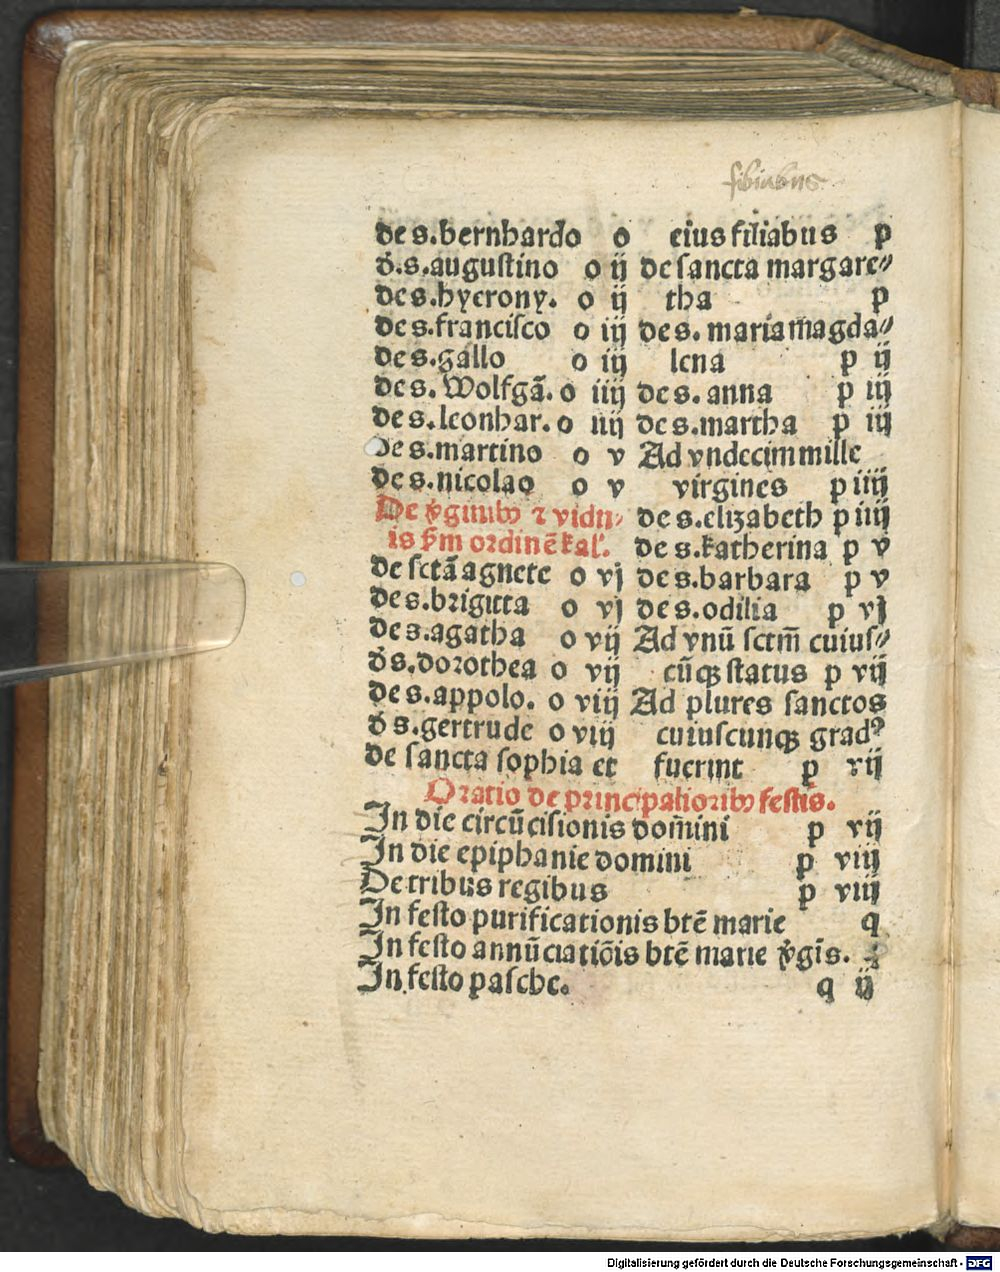 filiabus
de s. bernhardo o
d̄. s. augustino o ij
de s. hyerony. o ij
de s. francisco o iij
de s. gallo o iij
de s. Wolfgã. o iiij
de s. leonhar. o iiij
de s. martino o v
de s. nicolao o v
De v̾ginibꝰ ⁊ vidu⸗
is ẜm ordinẽ kal'.
de sctã agnete o vj
de s. brigitta o vj
de s. agatha o vij
d̄ s. dorothea o vij
de s. appolo. o viij
d̄ s. gertrude o viij
de sancta sophia et
eius filiabus p
de sancta margare⸗
tha p
de s. maria magda⸗
lena p ij
de s. anna p iij
de s. martha p iij
Ad vndecim mille
virgines p iiij
de s. elizabeth p iiij
de s. katherina p v
de s. barbara p v
de s. odilia p vj
Ad vnũ sctm̃ cuius⸗
cũqꝫ status p vij
Ad plures sanctos
cuiuscunqꝫ gradꝰ
fuerint p vij
Oratio de principalioribꝰ festis.
In die circũcisionis dom̃ini p vij
In die epiphanie domini p viij
De tribus regibus p viij
In festo purificationis btẽ marie q
In festo annũciatiõis btẽ marie v̾gis̃.
In festo pasche. q ij
Digitalisierung gefördert durch die Deutsche Forschungsgemeinschaft - DFG